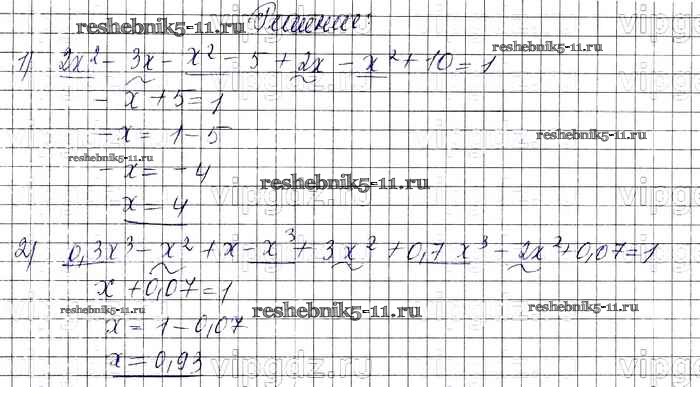 Решение:
reshebnik5-11.ru
1) 2x² - 3x - x² - 5 + 2x - x² + 10 = 1
- x + 5 = 1
- x = 1 - 5
reshebnik5-11.ru
reshebnik5-11.ru
- x = -4
reshebnik5-11.ru
x = 4
2) 0,3x³ - x² + x - x³ + 3x² + 0,7x³ - 2x² + 0,07 = 1
x + 0,07 = 1
reshebnik5-11.ru
reshebnik5-11.ru
reshebnik5-11.ru
x = 1 - 0,07
x = 0,93
vipgdz.ru